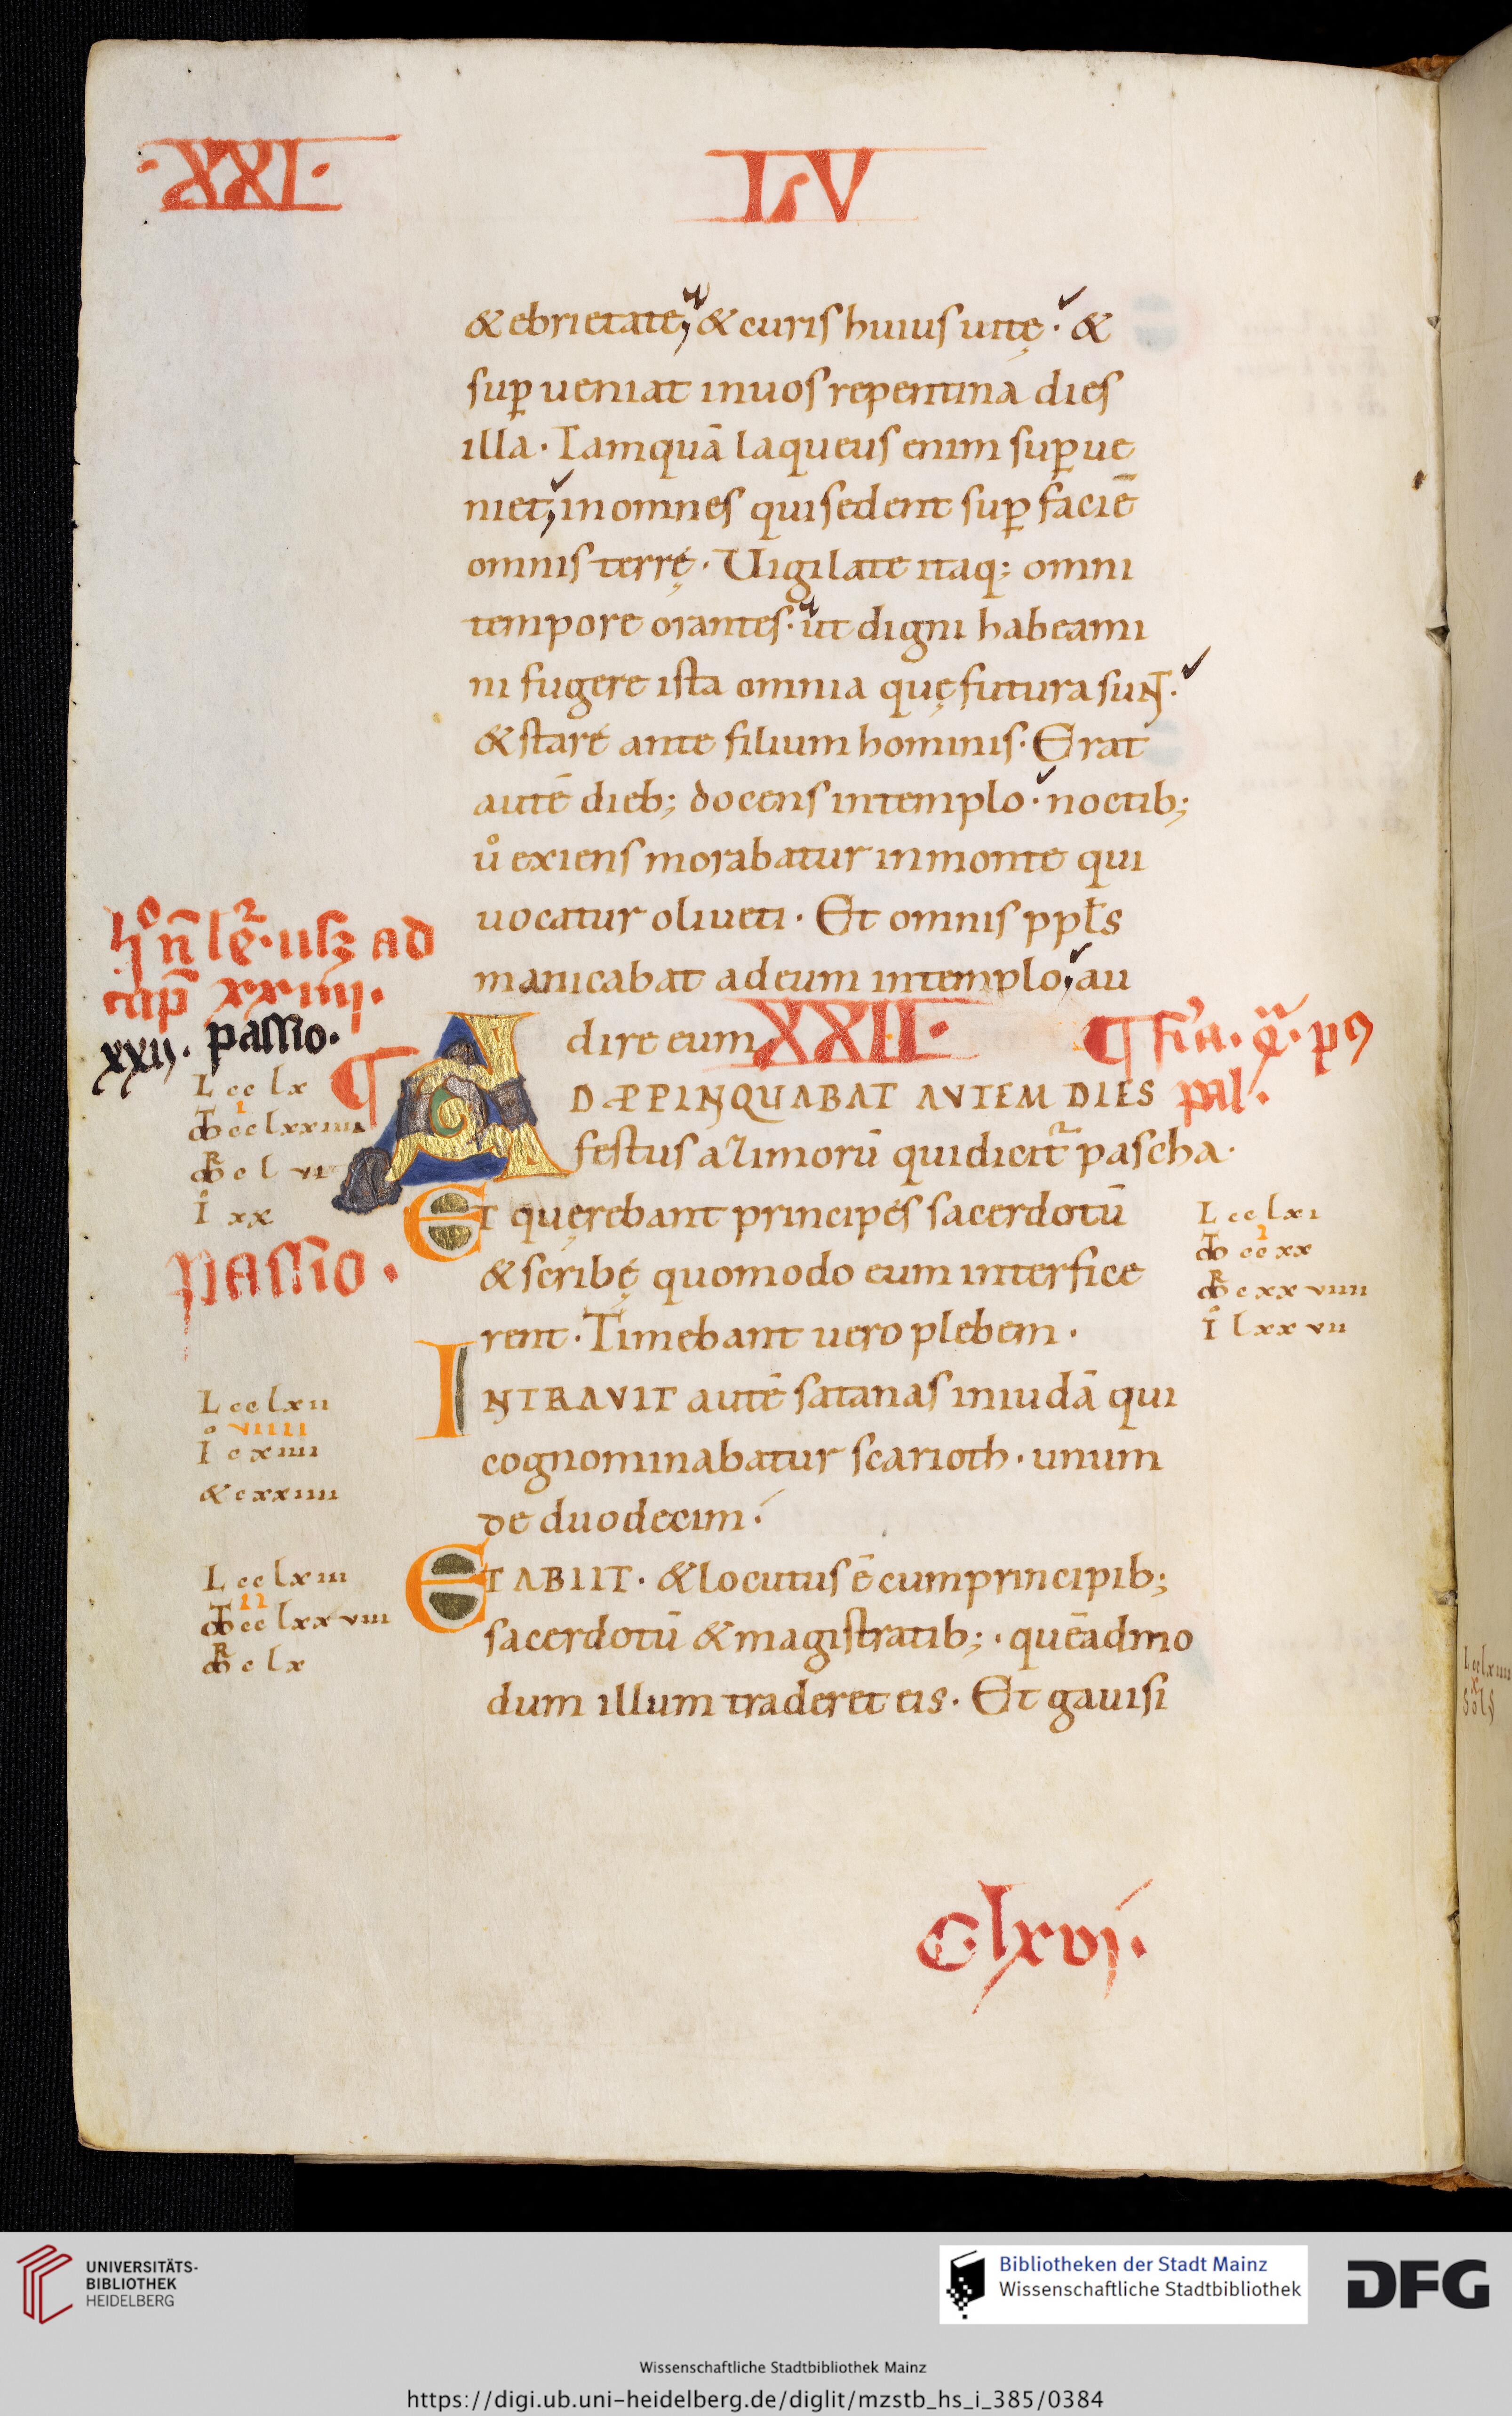 ·XXI· LV
& ebrietate, & curis huius uitę· &
suꝑ ueniat inuos repentina dies
illa· Tamquā laqueus enim suꝑ ue
niet, in omnes qui sedent suꝑ faciē
omnis terrę· Uigilate itaq; omni
tempore orantes· ut digni habeami
ni fugere ista omnia quę futura sunt·
& stare ante filium hominis· Erat
autē dieb; docens intemplo· noctib;
uͦ exiens morabatur inmonte qui
uocatur oliueti· Et omnis ppl̄s
manicabat ad eum intemplo, au
dire eum XXII·
AD PPINQUABAT AVTEM DIES
festus azimorū qui dicit᷑ pascha·
Et quęrebant principes sacerdotū
& scribę quomodo eum interfice
rent· Timebant uero plebem·
INTRAVIT autē satanas iniudā qui
cognominabatur scarioth· unum
de duodecim·
ET ABIIT· & locutus ē cum principib;
sacerdotū & magistratib;· quēadmo
dum illum traderet eis· Et gauisi
ad
cap̄ xxiiij·
xxij· passio·
L cclx
I
cclxxiiii
R
c l vi
I xx
passio·
¶ fi'a· q̈·
pal·
L cclxi
I
cc xx
R
c xx viiii
I lxx vii
L cclxii
VIIII
I c xiiii
& cxxiiii
L cclxiii
II
cclxx viii
R
c lx
C·lxvj·
UNIVERSITÄTS-
BIBLIOTHEK
HEIDELBERG
Bibliotheken der Stadt Mainz
Wissenschaftliche Stadtbibliothek
DFG
Wissenschaftliche Stadtbibliothek Mainz
https://digi.ub.uni-heidelberg.de/diglit/mzstb_hs_i_385/0384